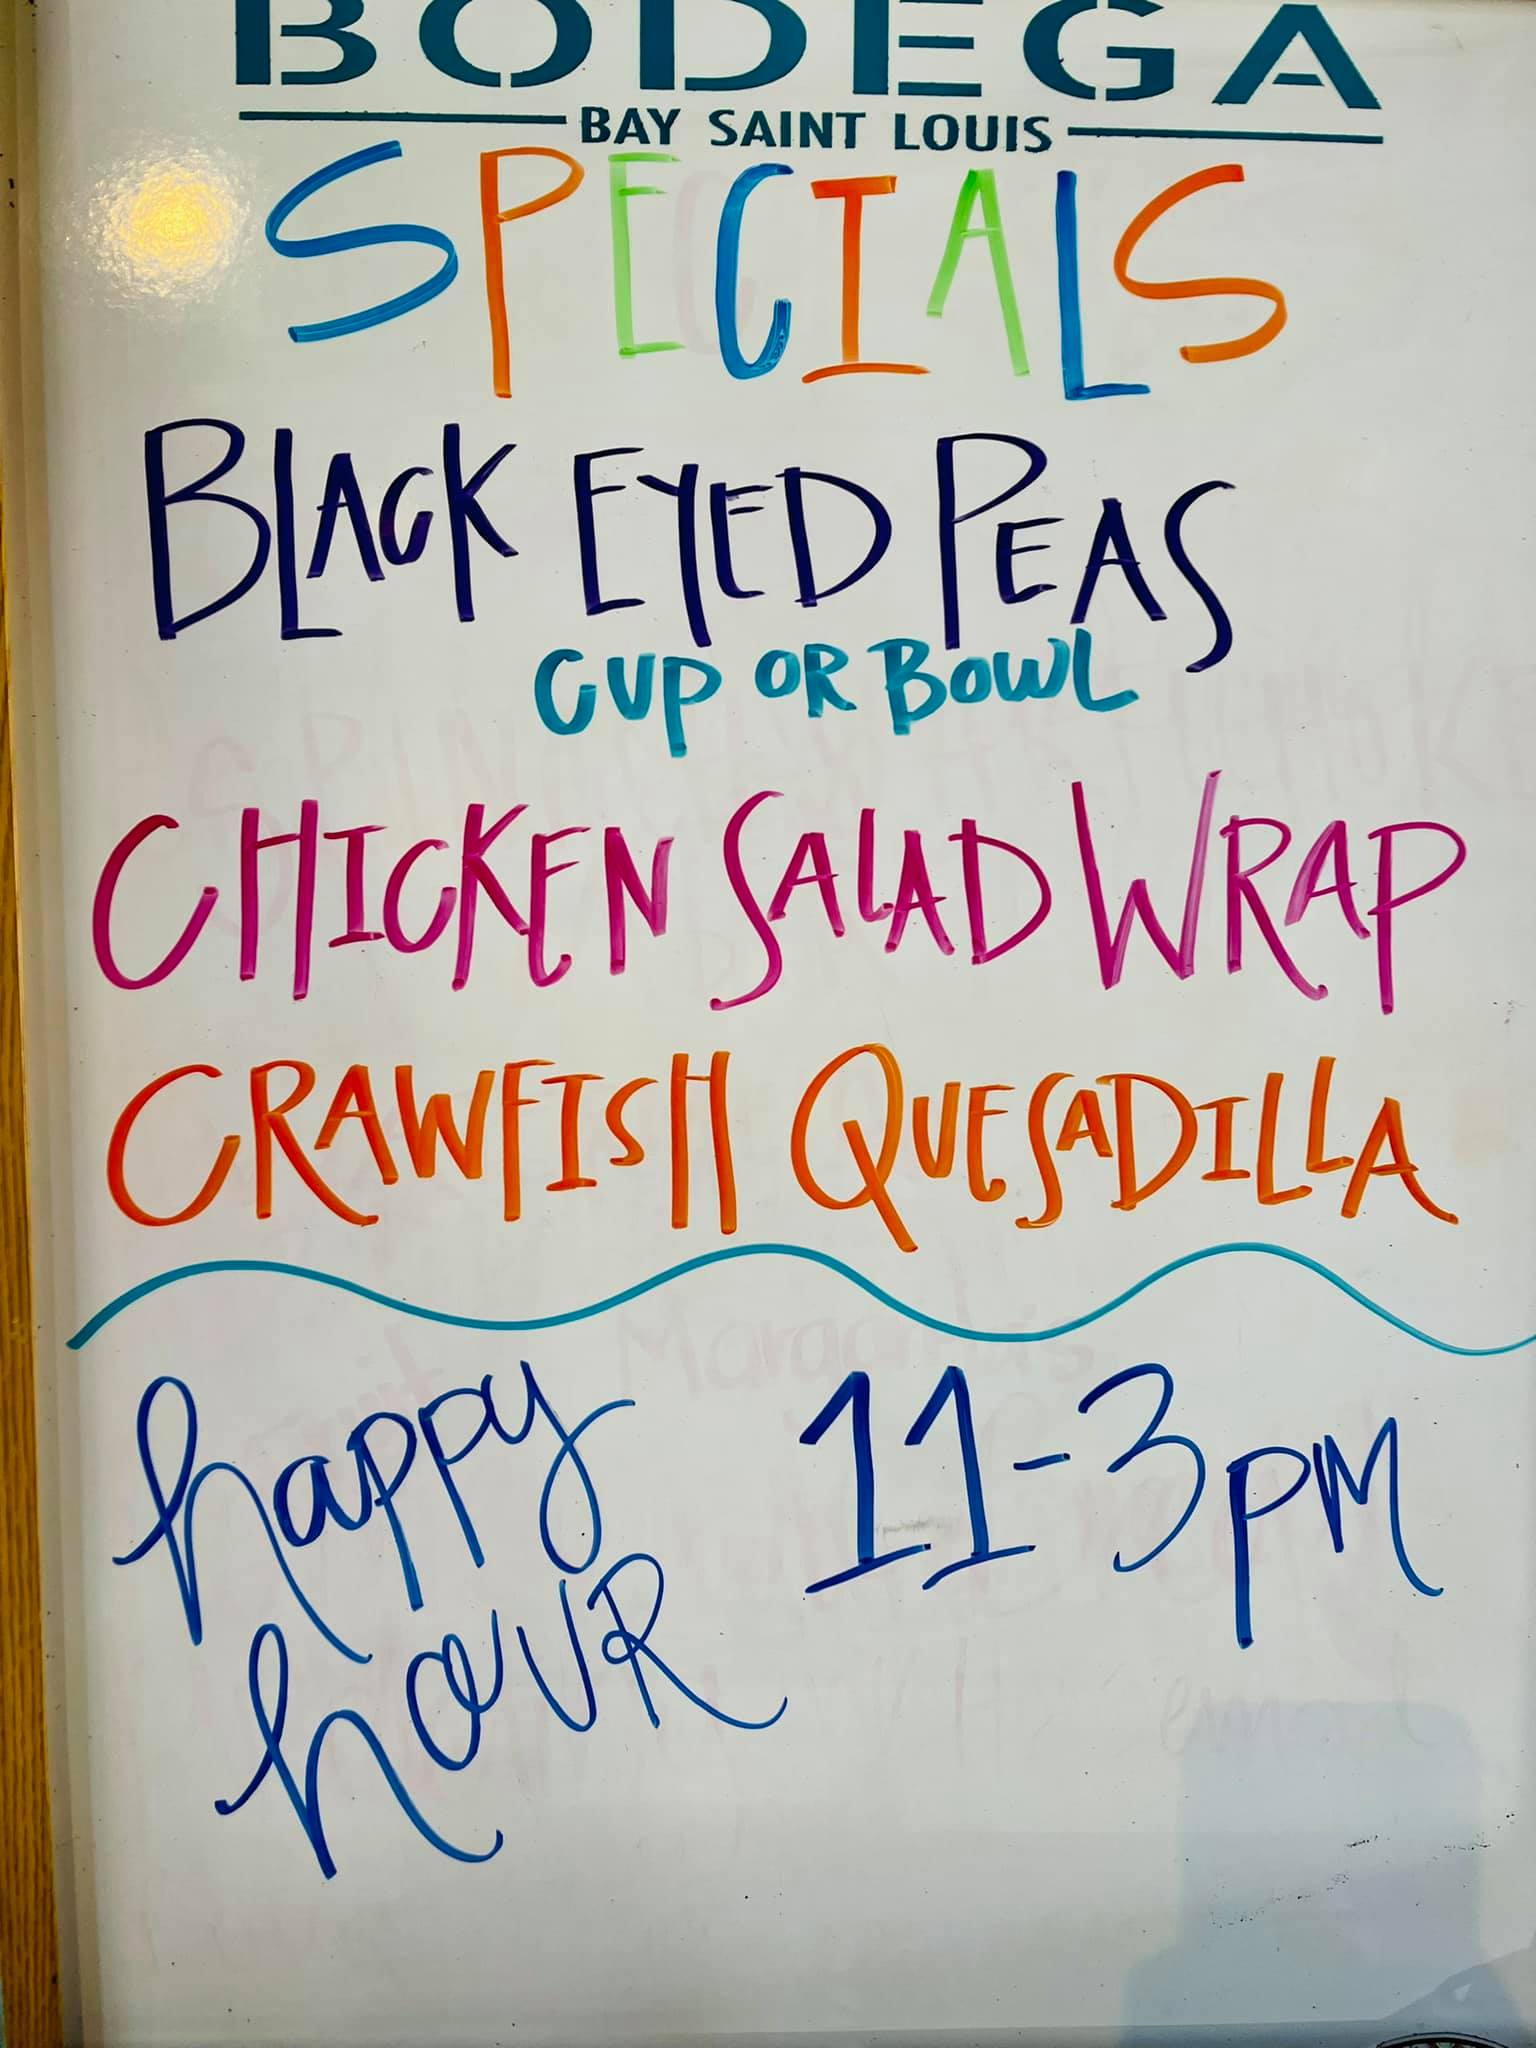 BODEGA
BAY SAINT LOUIS
SPECIALS
BLACK EYED PEAS
CUP OR BOWL
CHICKEN SALAD WRAP
CRAWFISH QUESADILLA
happy 11-3PM
hOUR